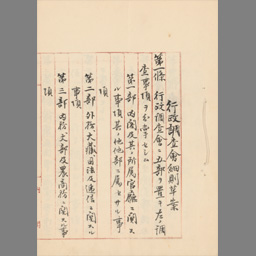 行政調査会細則草案
第一條 行政調査会ニ五部ヲ置キ左ノ調
査事項ヲ分掌セシム
第一部 内閣及其ノ所属官廳ニ関ス
ル事項其ノ他他部ニ属セサル事
項
第二部 外務大蔵司法及逓信ニ関スル
事項
第三部 内務文部及農商務ニ関スル事
項